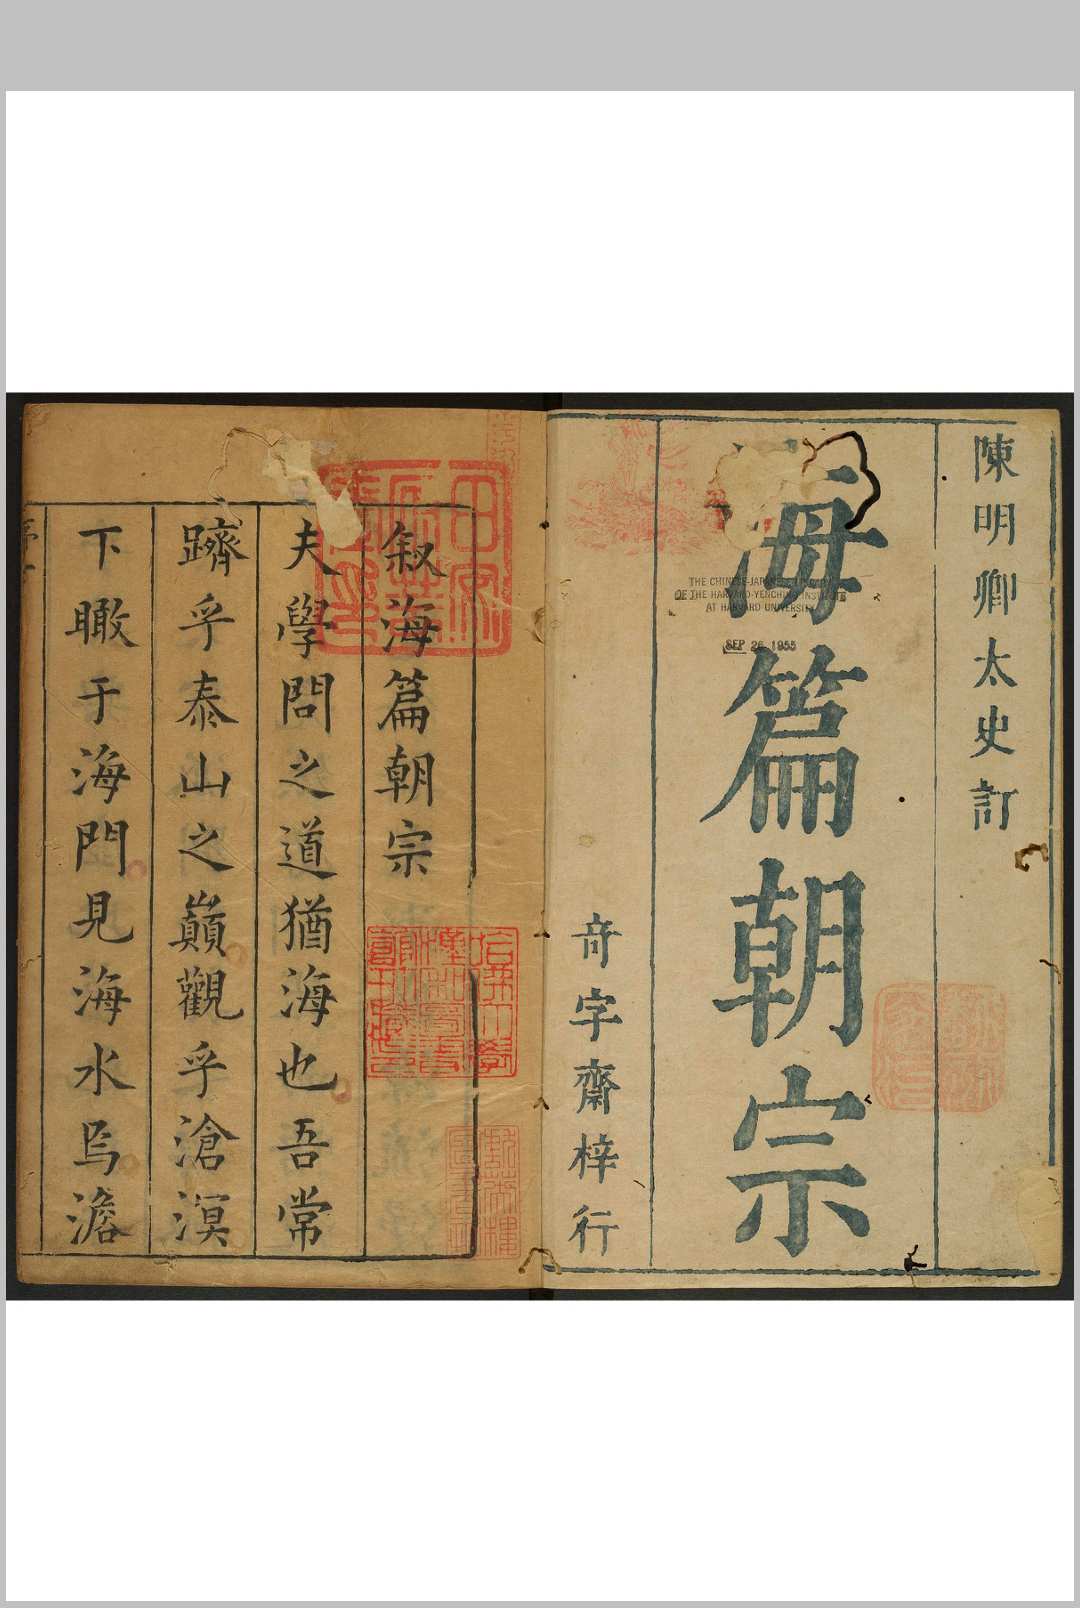 陳明卿太史訂
海篇朝宗
奇字齋梓行
THE CHINESE-JAPANESE LIBRARY
OF THE HARVARD-YENCHING INSTITUTE
AT HARVARD UNIVERSITY
SEP 26 1955
叙海篇朝宗
夫學問之道猶海也吾常
躋乎泰山之巔觀乎滄溟
下瞰于海門見海水焉澹